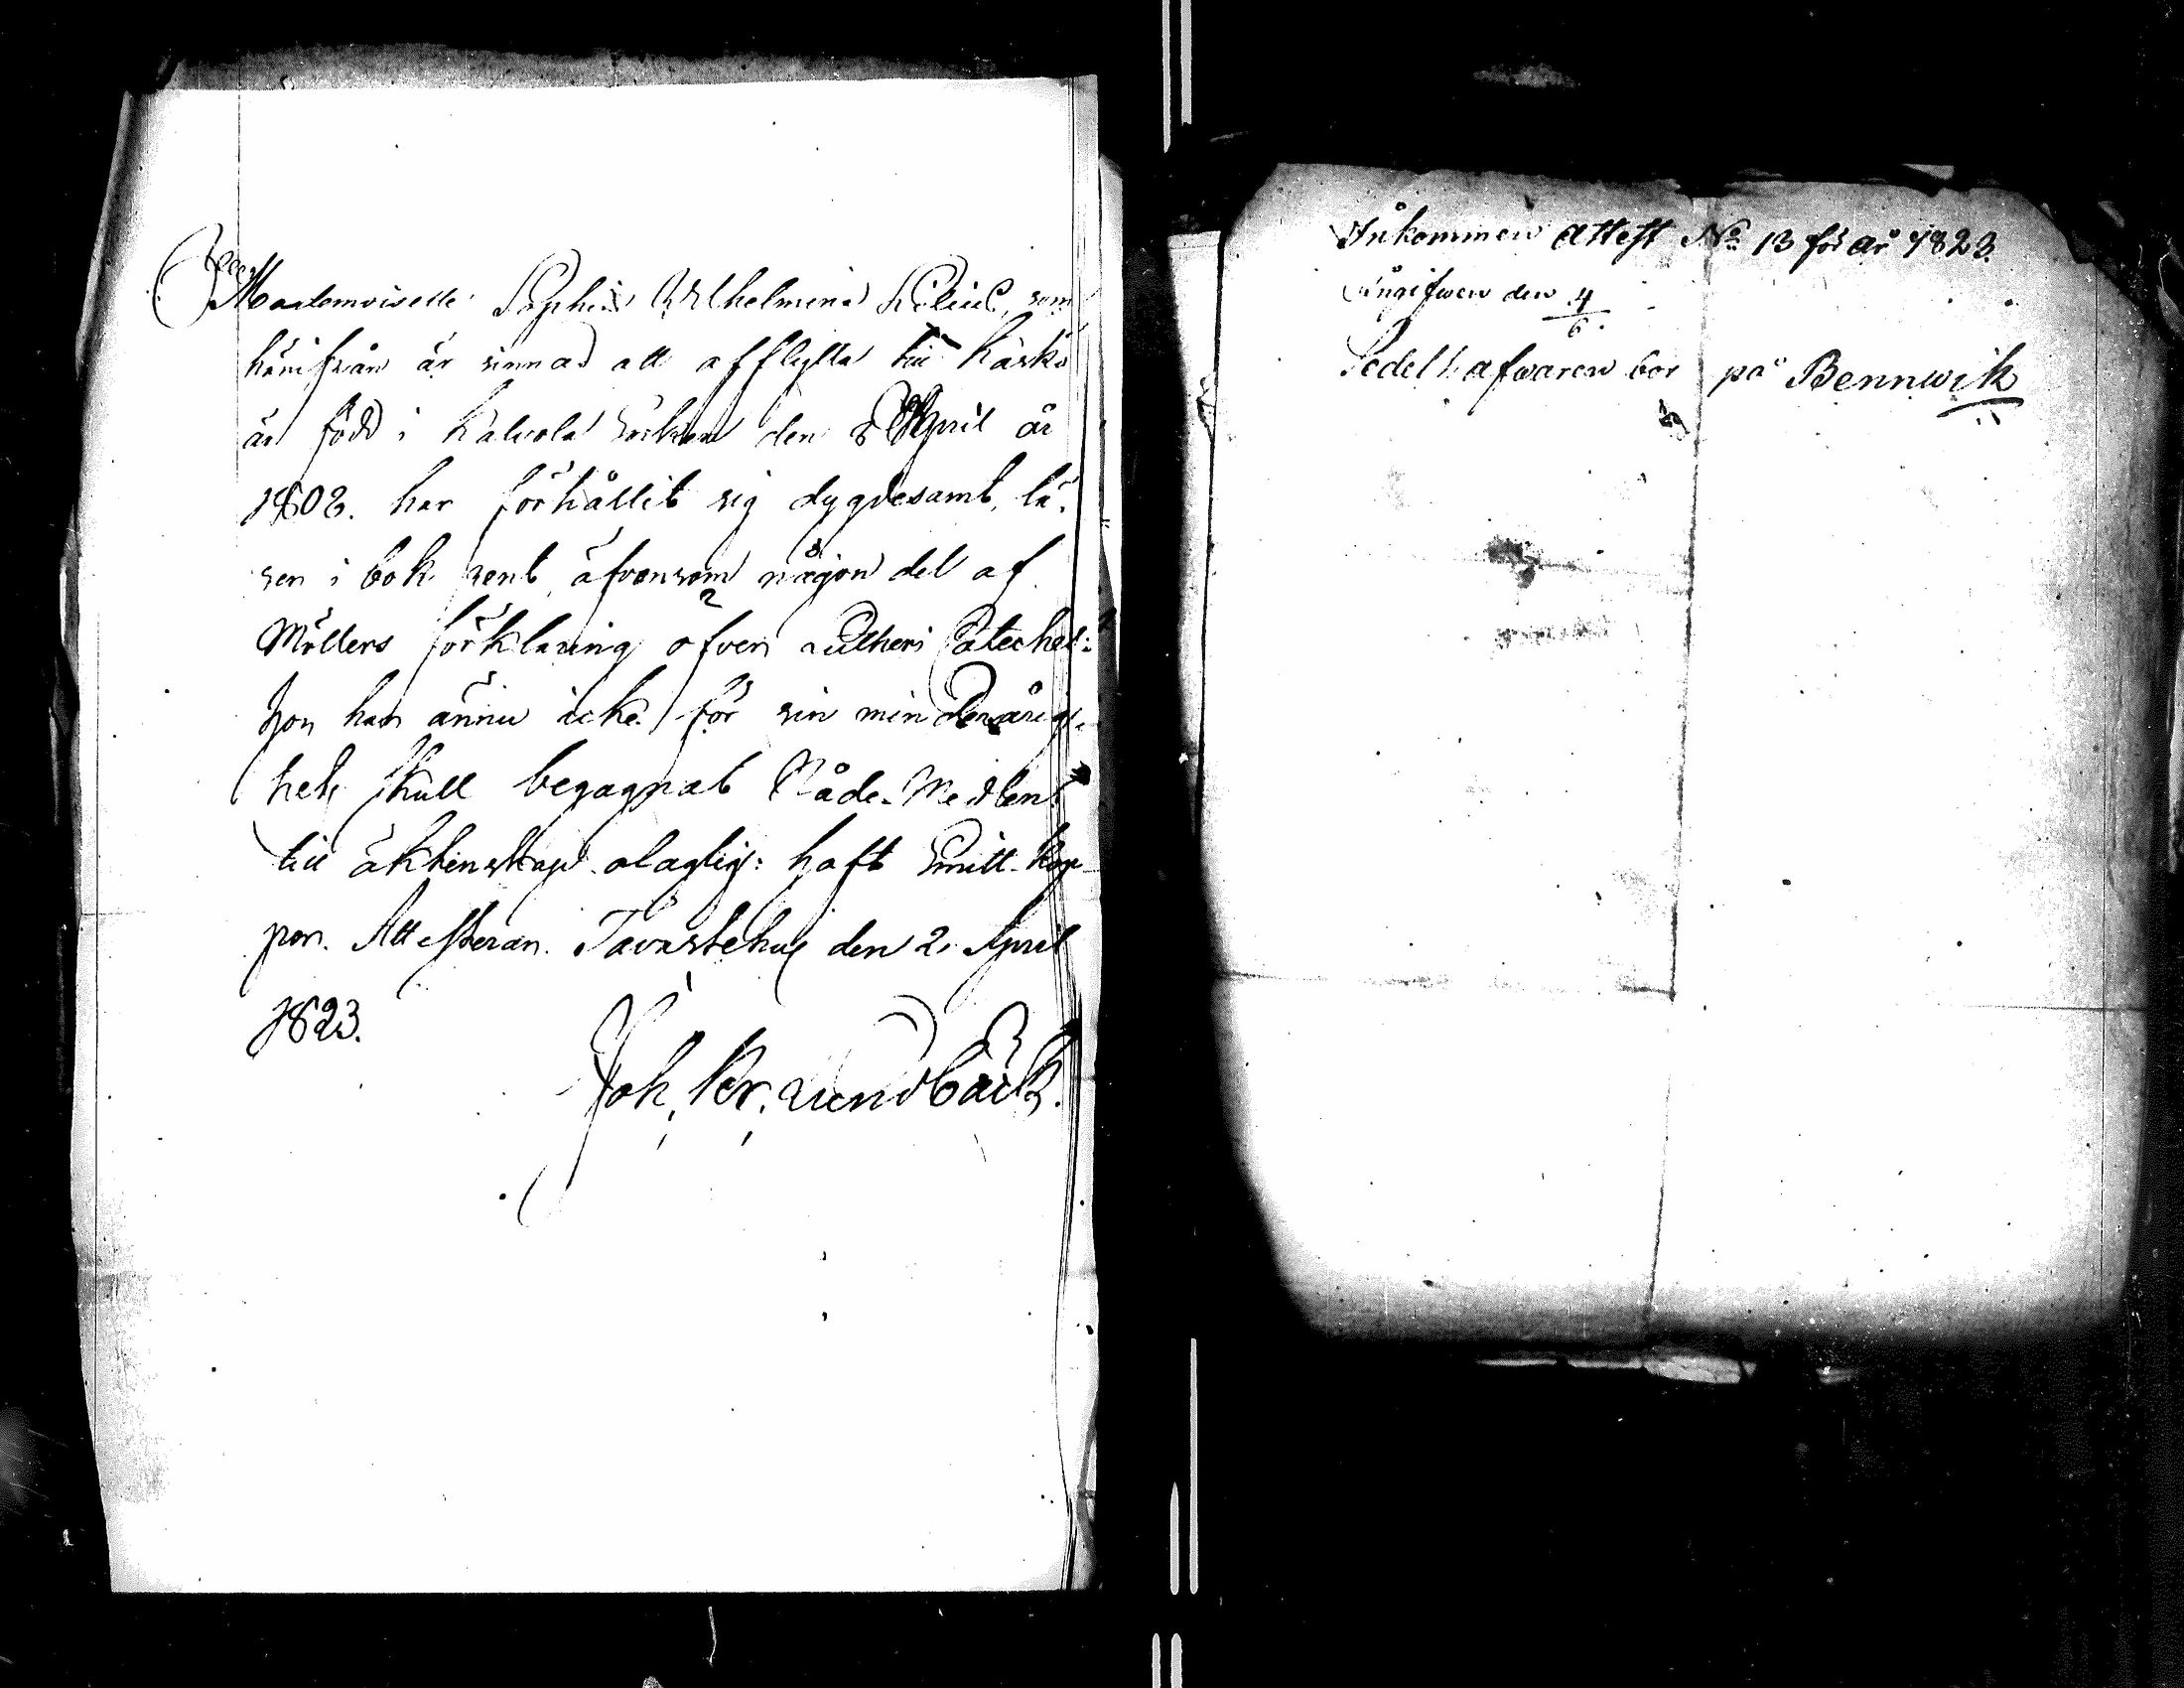 Mademoiselle Sophia Wilhelmina Kilius, som
härifrån är sinnad att afflytta till Kaskö
är född i Kalvola Socken den 8 April år
1808. har förhållit sig dygdesamt, lä-
sen i bok rent, äfvensom någon del af
Möllers förklaring öfver Lutheri Cateches:
hon har ännu icke för sin minderårig-
hets skull begagnat Nåde-Medlen
till äktenskap olaglig: haft Smitt-kop-
por. Attesteran. Tavastehus den 2 April
1823.
Joh. Kr. Lundbäck.
Inkommen attest No 13 för år 1823.
Ingifwen den 4/6.
Sedelhafwaren bor på Bennwik